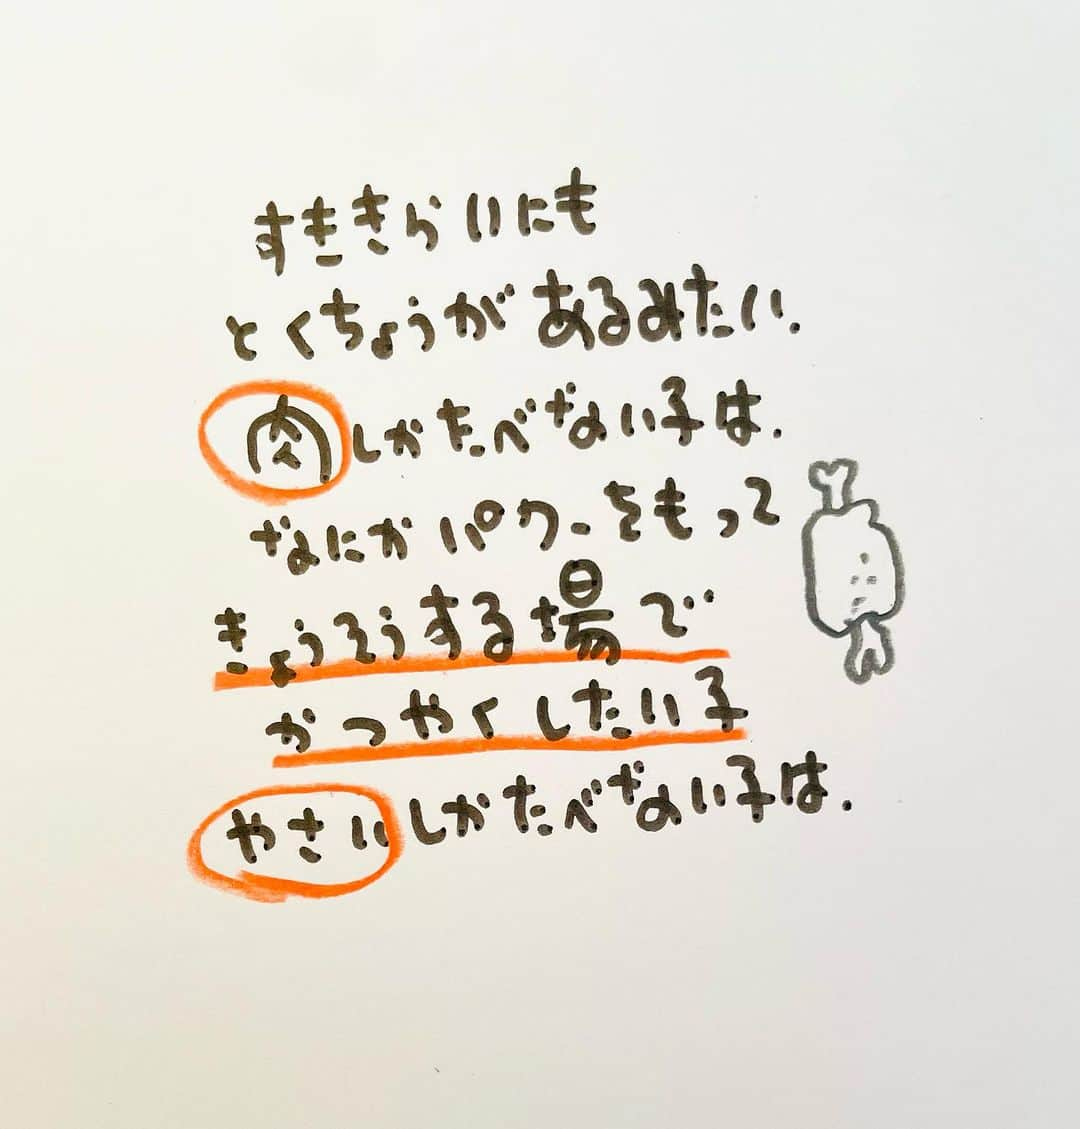 すききらいにも
とくちょうがあるみたい.
肉しかたべない子は.
なにかパワーをもって
きょうそうする場で
かつやくしたい子
やさいしかたべない子は.